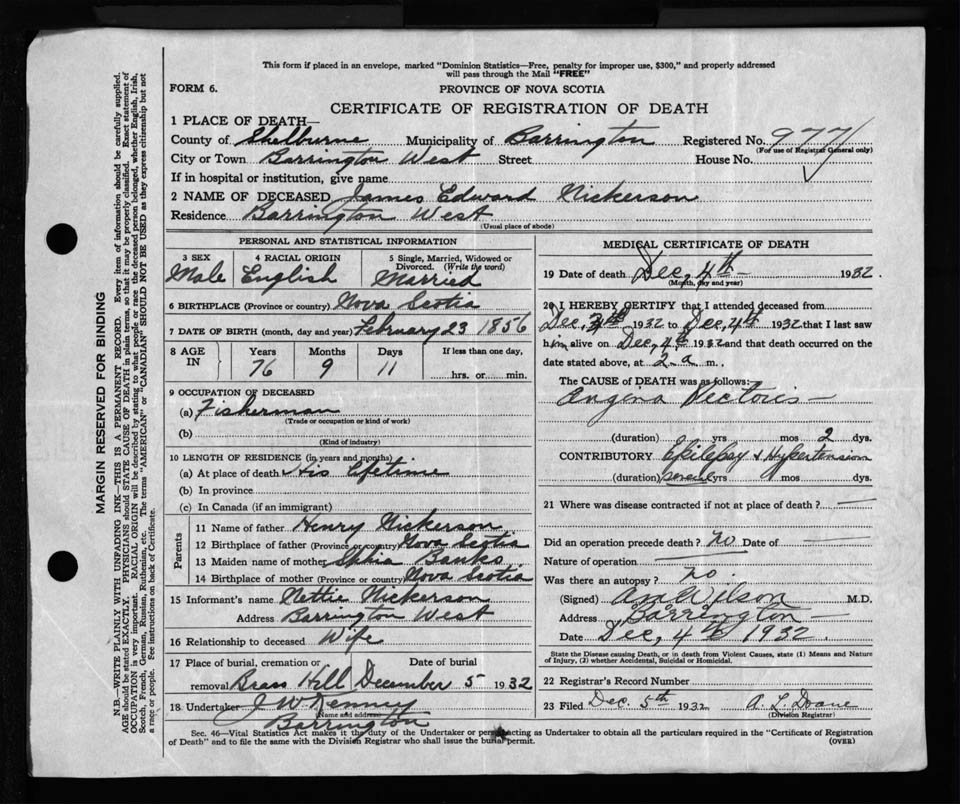 This form if placed in an envelope, marked "Dominion Statistics—Free, penalty for improper use, $300," and properly addressed
will pass through the Mail "FREE"
FORM 6.
PROVINCE OF NOVA SCOTIA
CERTIFICATE OF REGISTRATION OF DEATH
1 PLACE OF DEATH—
County of Shelburne Municipality of Barrington Registered No. 977
(For use of Registrar General only)
City or Town Barrington West Street House No.
If in hospital or institution, give name
2 NAME OF DECEASED James Edward Nickerson
Residence Barrington West
(Usual place of abode)
PERSONAL AND STATISTICAL INFORMATION
3 SEX 4 RACIAL ORIGIN 5 Single, Married, Widowed or
Divorced. (Write the word)
Male English Married
6 BIRTHPLACE (Province or country) Nova Scotia
7 DATE OF BIRTH (month, day and year) February 23 1856
8 AGE IN Years Months Days If less than one day,
76 9 11 hrs. or min.
9 OCCUPATION OF DECEASED
(a) Fisherman
(Trade or occupation or kind of work)
(b)
(Kind of industry)
10 LENGTH OF RESIDENCE (in years and months)
(a) At place of death His Lifetime
(b) In province
(c) In Canada (if an immigrant)
Parents
11 Name of father Henry Nickerson
12 Birthplace of father (Province or country) Nova Scotia
13 Maiden name of mother Banks
14 Birthplace of mother (Province or country) Nova Scotia
15 Informant's name Nettie Nickerson
Address Barrington West
16 Relationship to deceased Wife
17 Place of burial, cremation or Date of burial
removal Brass Hill December 5 1932
18 Undertaker J W Kenney
(Name and address)
Barrington
MEDICAL CERTIFICATE OF DEATH
19 Date of death Dec, 4th 1932.
(Month, day and year)
20 I HEREBY CERTIFY that I attended deceased from
Dec, 1932 to Dec, 4th 1932 that I last saw
him alive on Dec, 4th 1932 and that death occurred on the
date stated above, at 2 a m.
The CAUSE of DEATH was as follows:
Angena Pectoris
(duration) yrs mos 2 dys.
CONTRIBUTORY Epilepsy & Hypertension
(duration) several yrs mos dys.
21 Where was disease contracted if not at place of death?
Did an operation precede death? no Date of
Nature of operation
Was there an autopsy? no.
(Signed) Wilson M.D.
Address Barrington
Date Dec, 4th 1932
State the Disease causing Death, or in death from Violent Causes, state (1) Means and Nature
of Injury, (2) whether Accidental, Suicidal or Homicidal.
22 Registrar's Record Number
23 Filed Dec. 5th 1932 A. L. Doane
(Division Registrar)
Sec. 46—Vital Statistics Act makes it the duty of the Undertaker or person acting as Undertaker to obtain all the particulars required in the "Certificate of Registration
of Death" and to file the same with the Division Registrar who shall issue the burial permit. (OVER)
MARGIN RESERVED FOR BINDING
N.B.—WRITE PLAINLY WITH UNFADING INK—THIS IS A PERMANENT RECORD. Every item of information should be carefully supplied.
AGE should be stated EXACTLY. PHYSICIANS should STATE CAUSE OF DEATH in plain terms, so that it may be properly classified. Exact statement of
OCCUPATION is very important. RACIAL ORIGIN will be described by stating to what people or race the deceased person belonged, whether English, Irish,
Scotch, French, German, Russian, Ruthenian, etc. The terms "AMERICAN" or "CANADIAN" SHOULD NOT BE USED as they express citizenship but not
a race or people. See instructions on back of Certificate.